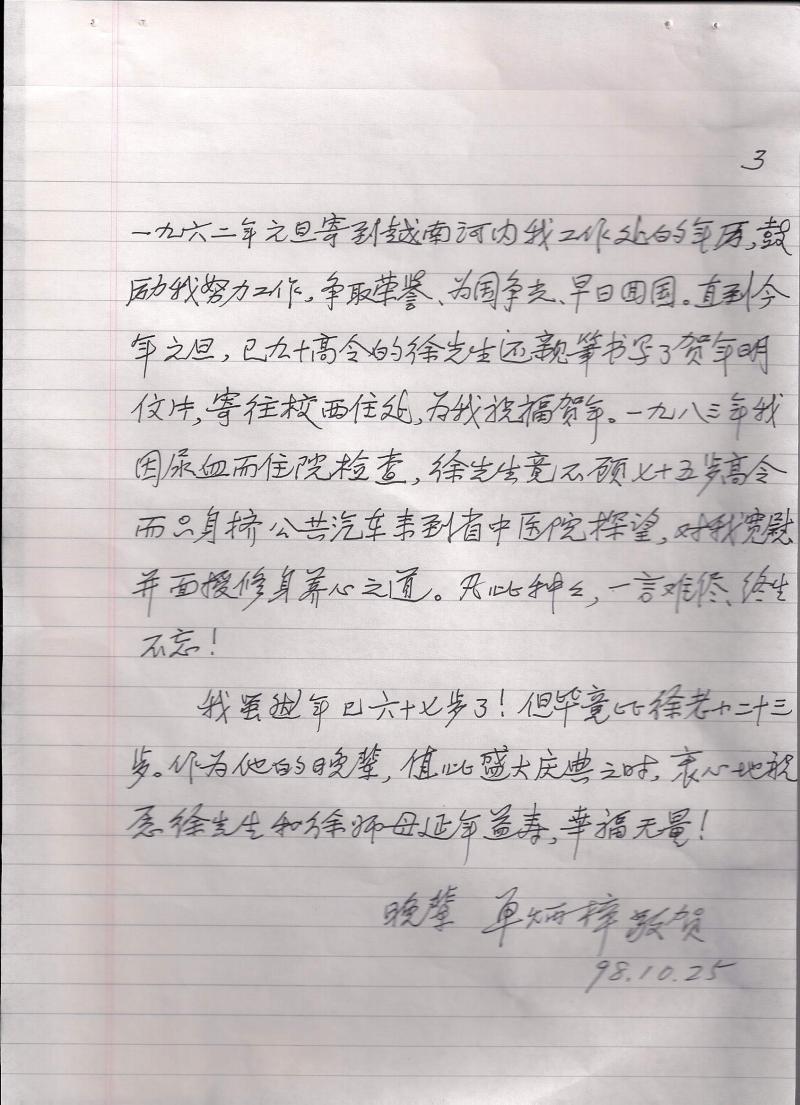 3
一九六二年元旦寄到越南河内我工作处的年历,鼓
励我努力工作,争取荣誉、为国争光、早日回国。直到今
年元旦,已九十高令的徐先生还亲笔书写了贺年明
信片,寄往校西住处,为我祝福贺年。一九八三年我
因尿血而住院检查,徐先生竟不顾七十五岁高令
而只身挤公共汽车来到省中医院探望,对我宽慰
并面授修身养心之道。凡此种々,一言难尽、终生
不忘!
我虽然年已六十七岁了!但毕竟比徐老小二十三
岁。作为他的晚辈,值此盛大庆典之时,衷心地祝
愿徐先生和徐师母延年益寿,幸福无量!
晚辈 单炳梓敬贺
98.10.25